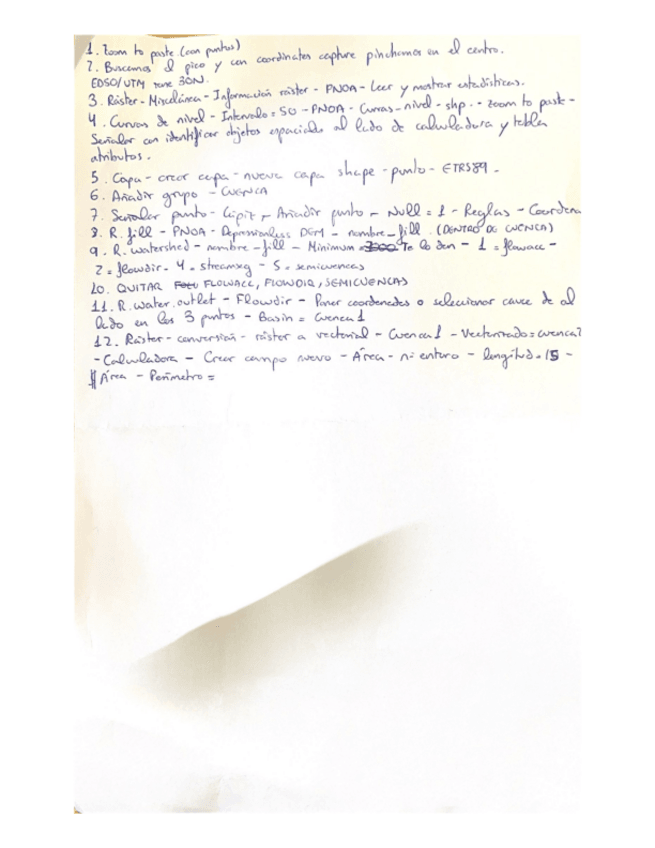 1. Zoom to paste (con puntos)
2. Buscamos el pico y con coordinates capture pinchamos en el centro.
ED50/UTM zone 30N.
3. Ráster - Miscelánea - Información ráster - PNOA - Leer y mostrar estadísticas.
4. Curvas de nivel - Intervalo = 50 - PNOA - Curvas_nivel_shp. - zoom to paste -
Señalar con identificar objetos espaciales al lado de calculadora y tabla
atributos.
5. Capa - crear capa - nueva capa shape - punto - ETRS89 -
6. Añadir grupo - CUENCA
7. Señalar punto - Lápiz - Añadir punto - Null = 1 - Reglas - Coordena
8. R. fill - PNOA - Depressionless DEM - nombre_fill. (DENTRO DE CUENCA)
9. R. watershed - nombre_fill - Minimum = Te lo dan - 1 = flowacc -
2 = flowdir - 4 = streamsg - 5 = semicuencas
10. QUITAR FLOWACC, FLOWDIR, SEMICUENCAS
11. R. water.outlet - Flowdir - Poner coordenadas o seleccionar cauce de al
lado en los 3 puntos - Basin = Cuenca 1
12. Ráster - conversión - ráster a vectorial - Cuenca 1 - Vectorizado = cuenca2
- Calculadora - Crear campo nuevo - Área - nº entero - longitud = 15 -
Área - Perímetro =